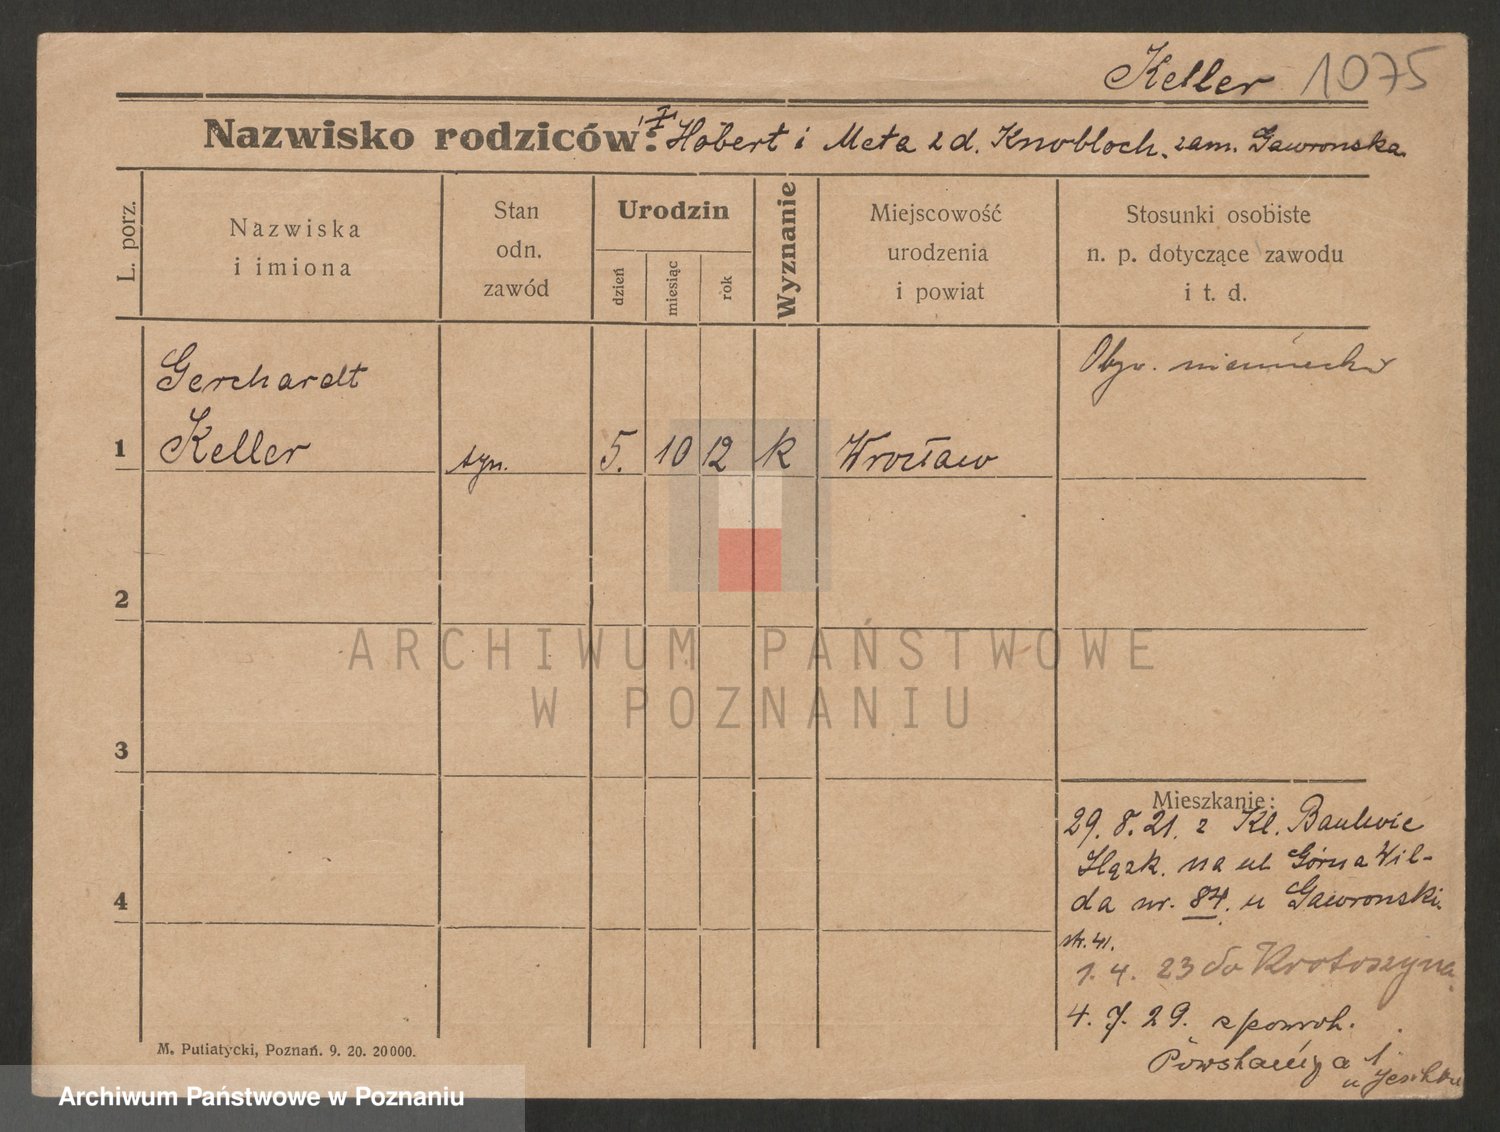 Keller 1075
Nazwisko rodziców: Hobert i Meta z d. Knobloch. zam. Gawronska
L. porz.
Nazwiska i imiona
Stan odn. zawód
Urodzin
dzień
miesiąc
rok
Wyznanie
Miejscowość urodzenia i powiat
Stosunki osobiste n. p. dotyczące zawodu i t. d.
Gerchardt
Obyw. niemiecki
1 Keller syn. 5. 10 12 k Wrocław
2
3
4
ARCHIWUM PAŃSTWOWE
W POZNANIU
Mieszkanie:
29. 8. 21. z Kl. Baulwie
na ul Górna Wil-
da nr. 84. u Gawronski.
str. 41.
1. 4. 23 do Krotoszyna
4. 7. 29. z powrot.
1
M. Putiatycki, Poznań. 9. 20. 20000.
Archiwum Państwowe w Poznaniu